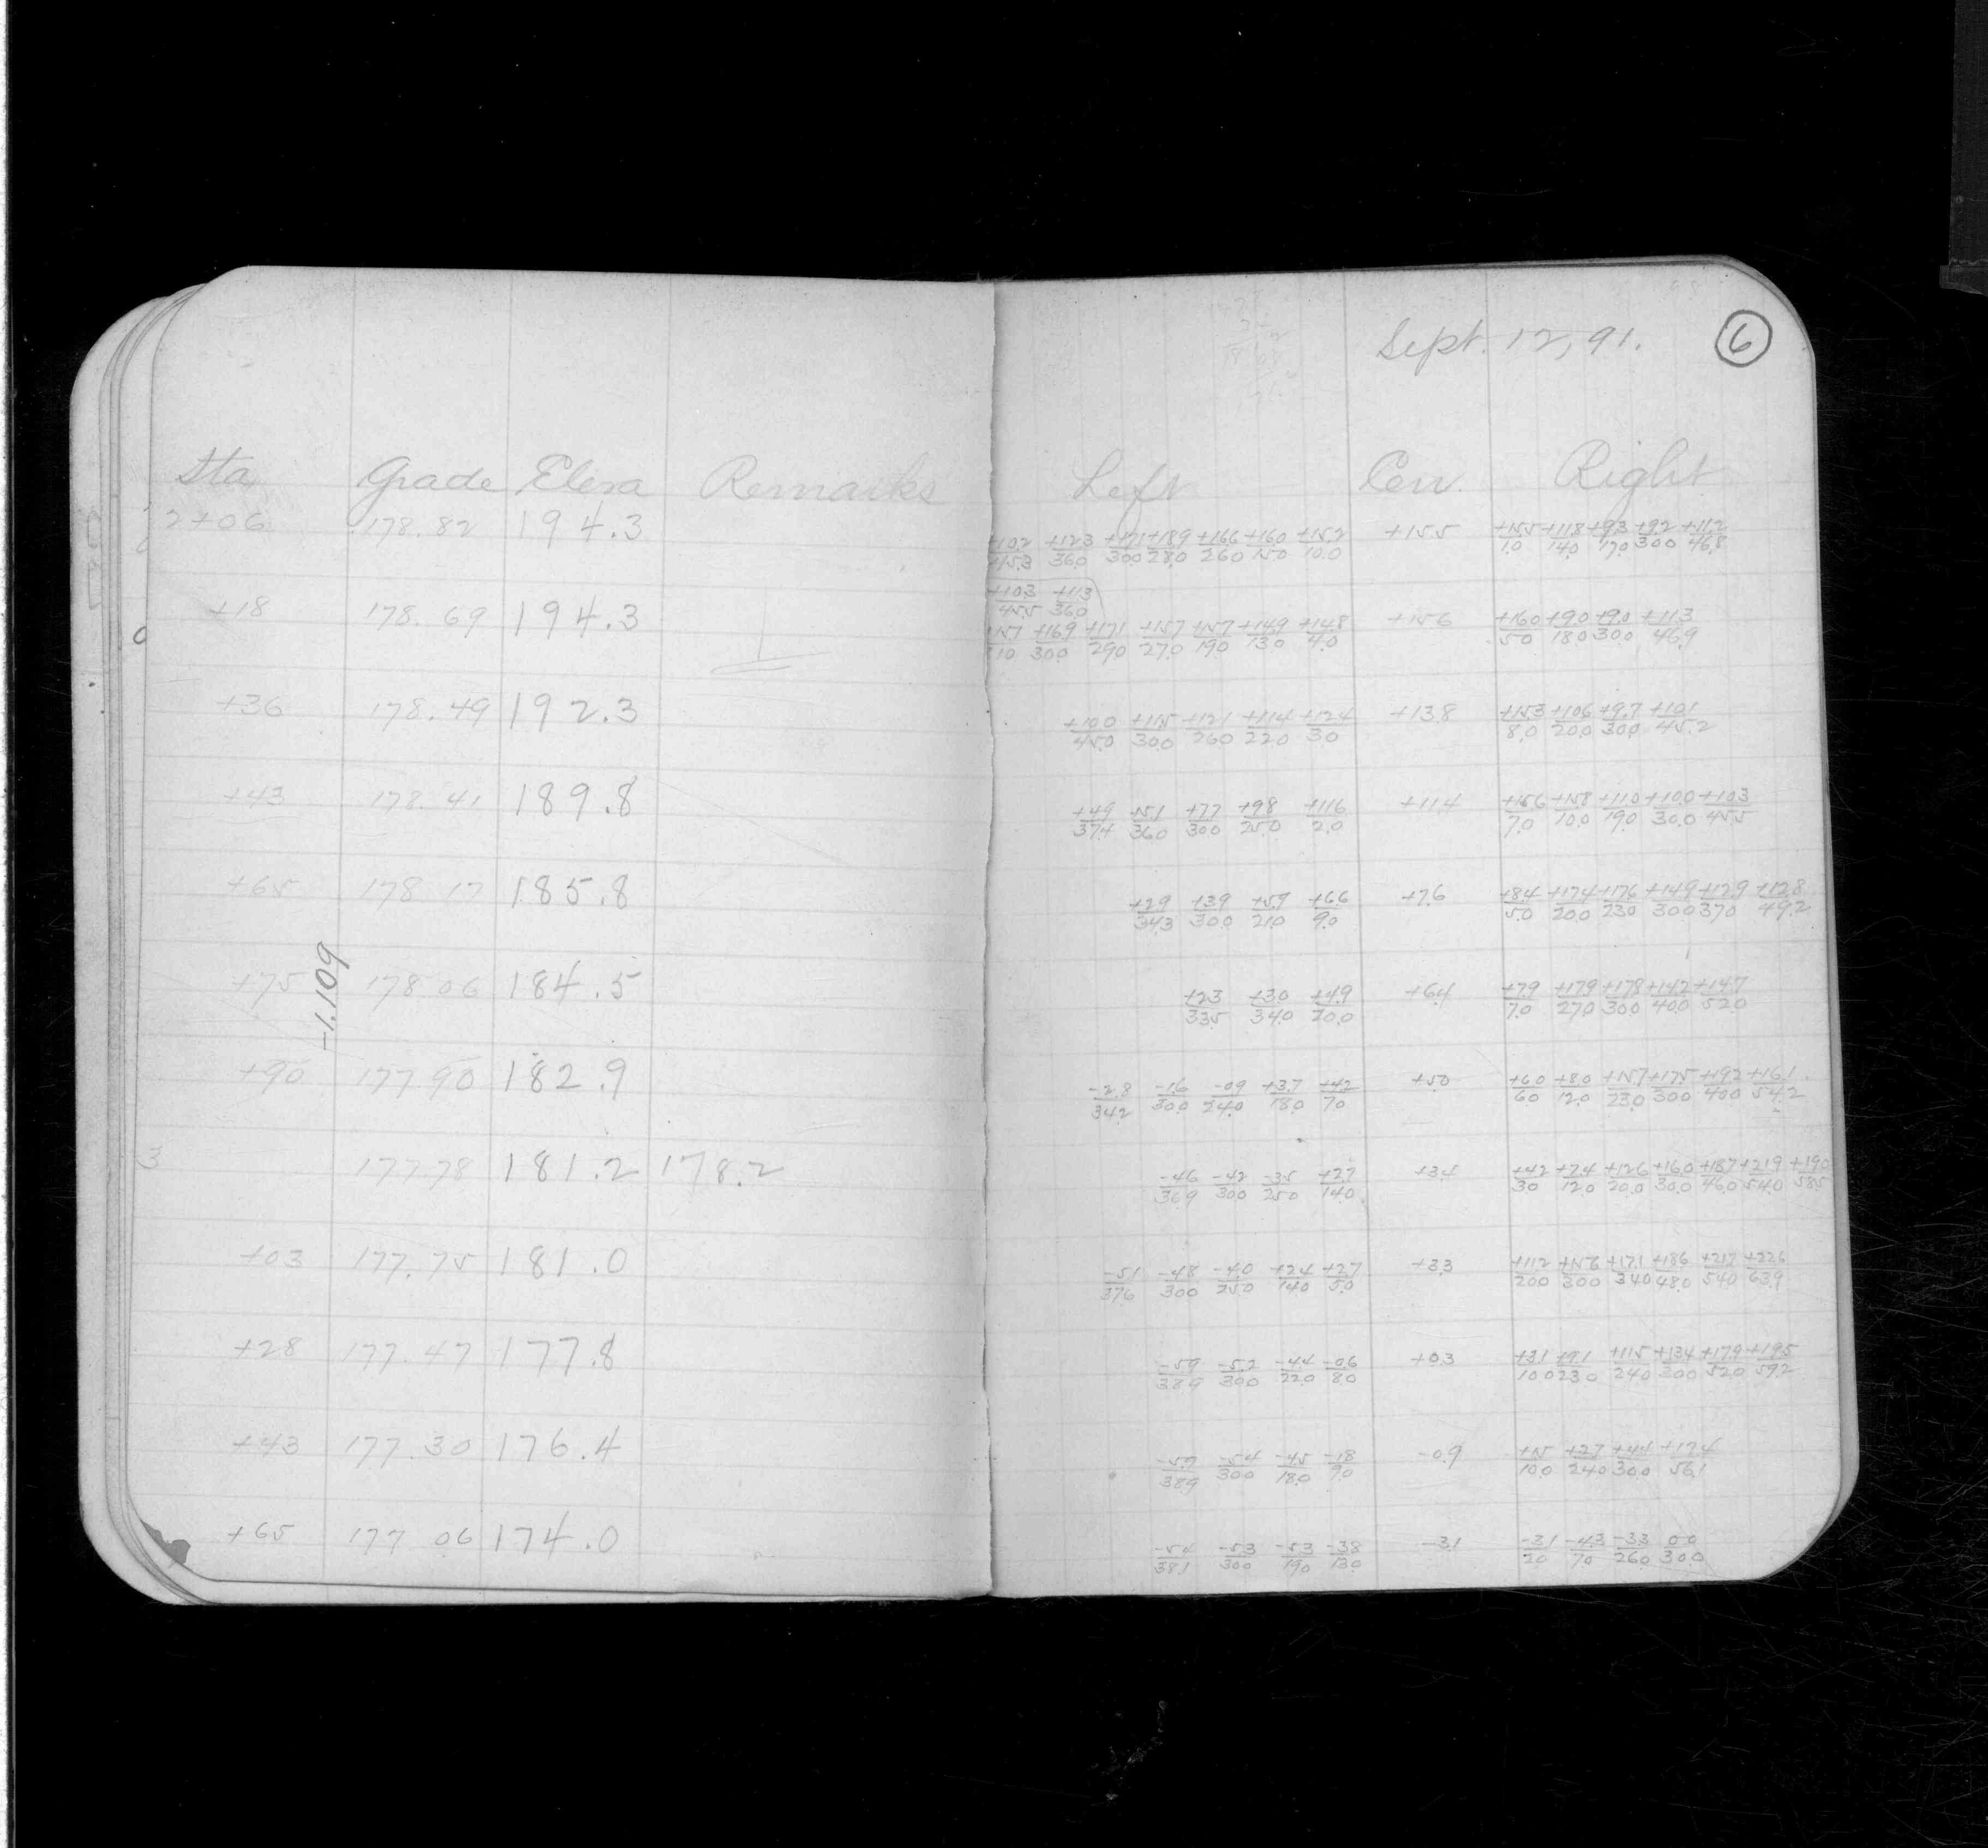 Sept. 12, 91. 6
Sta Grade Eleva Remarks Left Cen. Right
2+06 178.82 194.3 +10.2/45.3 +12.3/36.0 +17.1/30.0 +18.9/28.0 +16.6/26.0 +16.0/15.0 +15.2/10.0 +15.5 +15.5/1.0 +11.8/14.0 +9.3/17.0 +9.2/30.0 +11.2/46.8
+10.3/45.5 +11.3/36.0
+18 178.69 194.3 +16.9/30.0 +17.1/29.0 +15.7/27.0 +15.7/19.0 +14.9/13.0 +14.8/4.0 +15.6 +16.0/5.0 +9.0/18.0 +9.0/30.0 +11.3/46.9
+36 178.49 192.3 +10.0/45.0 +11.5/30.0 +12.1/26.0 +11.4/22.0 +12.4/3.0 +13.8 +15.3/8.0 +10.6/20.0 +9.7/30.0 +10.1/45.2
+43 178.41 189.8 +4.9/37.4 +5.1/36.0 +7.7/30.0 +9.8/25.0 +11.6/2.0 +11.4 +15.6/7.0 +15.8/10.0 +11.0/19.0 +10.0/30.0 +10.3/45.5
+65 178.17 185.8 +2.9/34.3 +3.9/30.0 +5.9/21.0 +6.6/9.0 +7.6 +8.4/5.0 +17.4/20.0 +17.6/23.0 +14.9/30.0 +12.9/37.0 +12.8/49.2
+75 -1.109 178.06 184.5 +2.3/33.5 +3.0/34.0 +4.9/20.0 +6.4 +7.9/7.0 +17.9/27.0 +17.8/30.0 +14.2/40.0 +14.7/52.0
+90 177.90 182.9 -2.8/34.2 -1.6/30.0 -0.9/24.0 +3.7/18.0 +4.2/7.0 +5.0 +6.0/6.0 +8.0/12.0 +15.7/23.0 +17.5/30.0 +19.2/40.0 +16.1/54.2
3 177.78 181.2 178.2 -4.6/36.9 -4.2/30.0 -3.5/25.0 +2.7/14.0 +3.4 +4.2/3.0 +7.4/12.0 +12.6/20.0 +16.0/30.0 +18.7/46.0 +21.9/54.0 +19.0/58.5
+03 177.75 181.0 -5.1/37.6 -4.8/30.0 -4.0/25.0 +2.4/14.0 +2.7/5.0 +3.3 +11.2/20.0 +15.6/30.0 +17.1/34.0 +18.6/48.0 +21.7/54.0 +22.6/63.9
+28 177.47 177.8 -5.9/38.9 -5.2/30.0 -4.4/22.0 -0.6/8.0 +0.3 +3.1/10.0 +9.1/23.0 +11.5/24.0 +13.4/30.0 +17.9/52.0 +19.5/59.2
+43 177.30 176.4 -5.9/38.9 -5.4/30.0 -4.5/18.0 -1.8/9.0 -0.9 +1.5/10.0 +2.7/24.0 +4.4/30.0 +17.4/56.1
+65 177.06 174.0 -5.4/38.1 -5.3/30.0 -5.3/19.0 -3.8/13.0 -3.1 -3.1/2.0 -4.3/7.0 -3.3/26.0 0.0/30.0